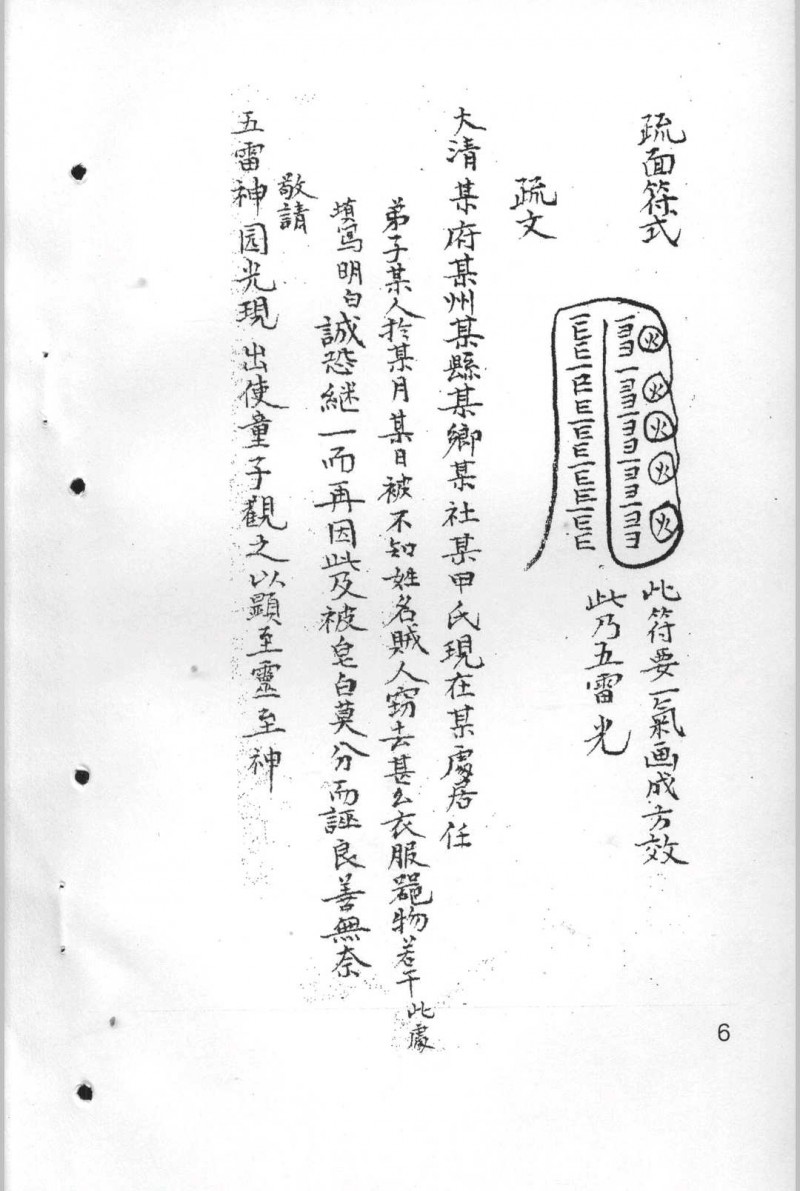 疏面符式
火
火
火
火
火
此符要一氣画成方效
此乃五雷光
疏文
大清某府某州某縣某鄉某社某甲氏現在某處居住
弟子某人於某月某日被不知姓名賊人窃去甚么衣服器物若干此處
填写明白誠恐継一而再因此及被皂白莫分而誣良善無奈
敬請
五雷神园光現出使童子觀之以顯至靈至神
6